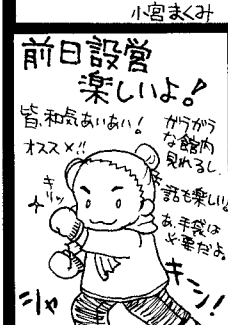 小宮まくみ
前日設営
楽しいよ!
皆、和気あいあい!
オススメ!!
がらがら
な館内
見れるし、
話も楽しい!
あ、手袋は
必要だよ。
キリッ
キシ!
シャ